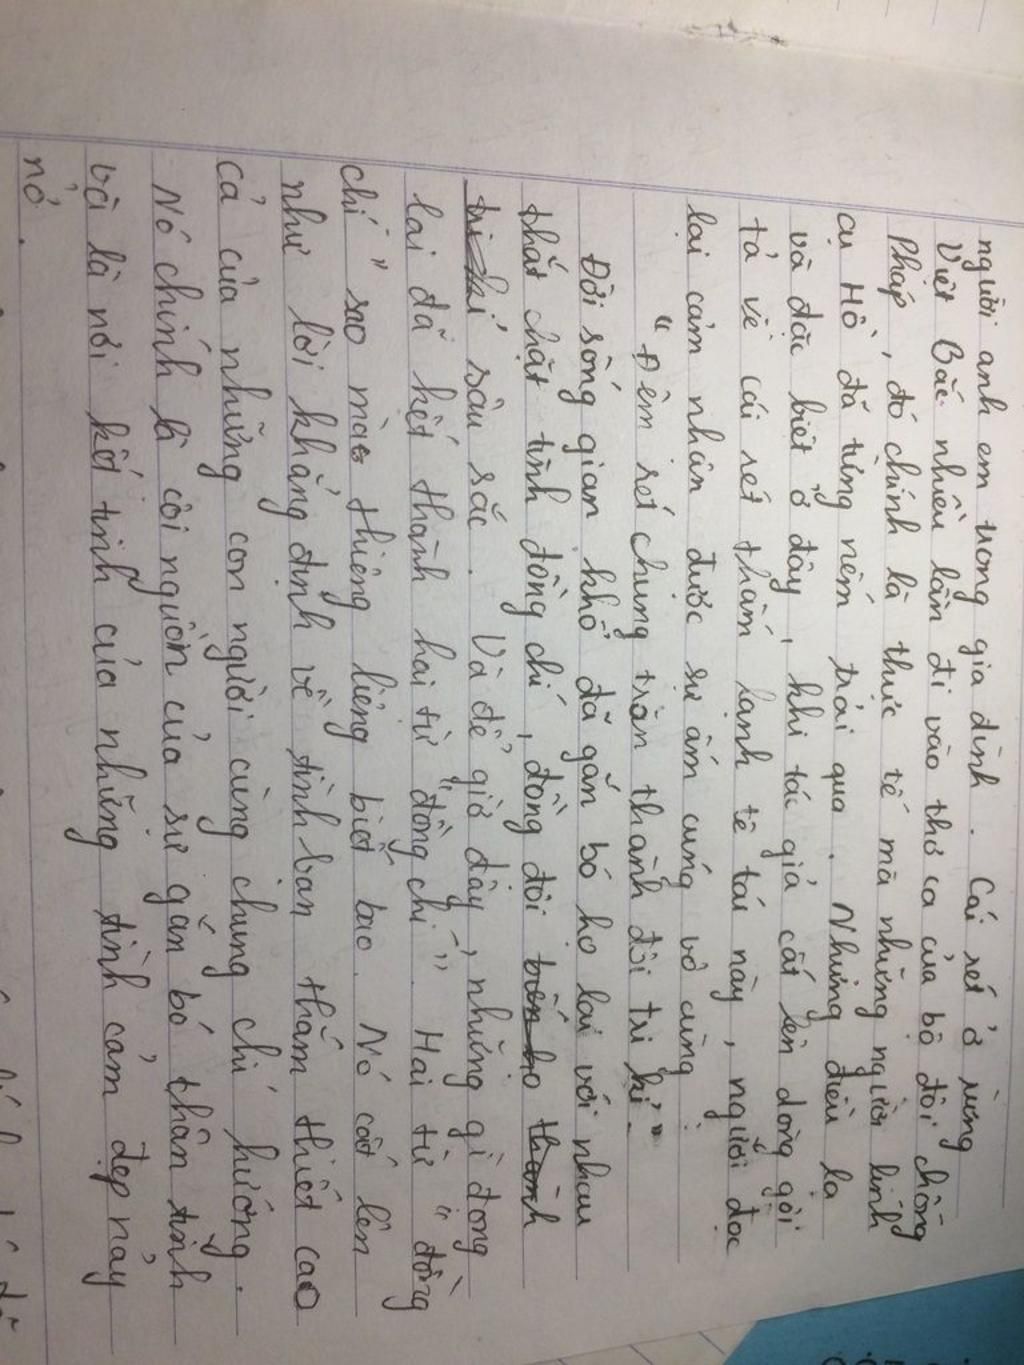 người anh em trong gia đình. Cái rét ở rừng
Việt Bắc nhiều lần đi vào thơ ca của bộ đội chống
Pháp, đó chính là thực tế mà những người lính
cụ Hồ đã từng nếm trải qua. Nhưng điều lạ
và đặc biệt ở đây, khi tác giả cất lên dòng gợi
tả về cái rét thấm lạnh tê tái này, người đọc
lại cảm nhân được sự ấm cúng vô cùng
"Đêm rét chung trăn thành đôi tri kỉ"
Đời sống gian khổ đã gắn bó họ lại với nhau
thắt chặt tình đồng chí, đồng đội
sâu sắc. Và để giờ đây, những gì đọng
lại đã kết thành hai từ "đồng chí". Hai từ "đồng
chí" sao mà thiêng liêng biết bao. Nó cất lên
như lời khẳng định về tình bạn thắm thiết cao
cả của những con người cùng chung chí hướng.
Nó chính là cội nguồn của sự gắn bó thân tình
bởi là nơi kết tinh của những tình cảm đẹp nảy
nở.